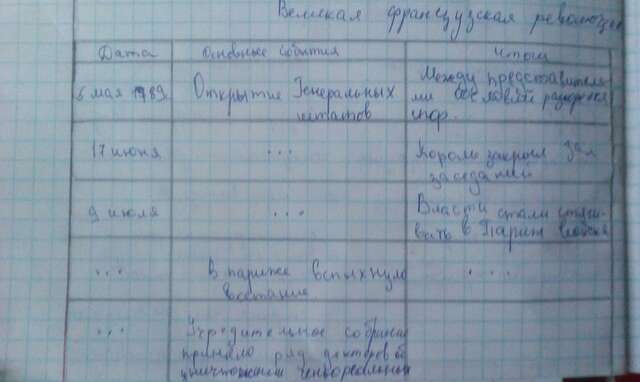 Великая французская революция
Дата Основные события Итоги
5 мая 1789г. Открытие Генеральных Между представителя-
штатов ми сословий разгорелся
спор.
17 июня ... Король закрыл зал
заседаний
9 июля ... Власти стали стяги-
вать в Париж войска
... В париже вспыхнуло ...
восстание
... Учредительное собрание
приняло ряд декретов об
уничтожении